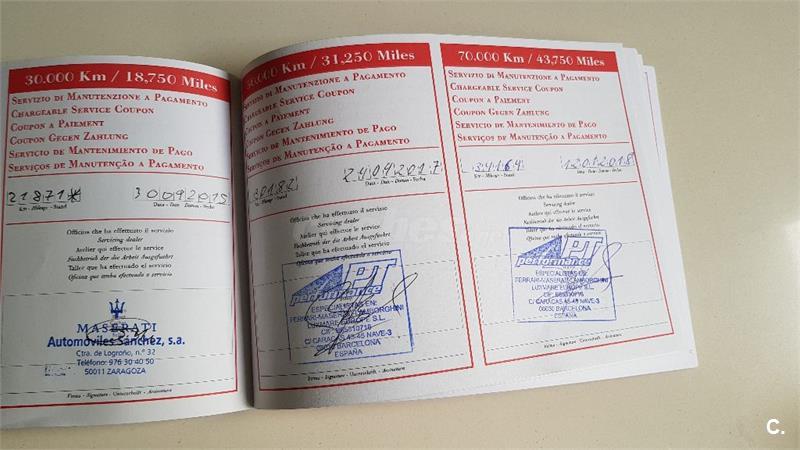 30.000 Km / 18,750 Miles
Servizio di Manutenzione a Pagamento
Chargeable Service Coupon
Coupon a Paiement
Coupon Gegen Zahlung
Servicio de Mantenimiento de Pago
Serviços de Manutenção a Pagamento
21871* 30092015
Km - Mileage - Stand Data - Date - Datum - Fecha
Officina che ha effettuato il servizio
Servicing dealer
Atelier qui effectue le service
Fachbetrieb der die Arbeit Ausgefuehrt
Taller que ha efectuado el servicio
Oficina que tenha efectuado o servicio
MASERATI
Automóviles Sánchez, s.a.
Ctra. de Logroño, n.º 32
Teléfono: 976 30 40 50
50011 ZARAGOZA
Firma - Signature - Unterschrift - Assinatura
50.000 Km / 31,250 Miles
Servizio di Manutenzione a Pagamento
Chargeable Service Coupon
Coupon a Paiement
Coupon Gegen Zahlung
Servicio de Mantenimiento de Pago
Serviços de Manutenção a Pagamento
30182 24042017
Km - Mileage - Stand Data - Date - Datum - Fecha
Officina che ha effettuato il servizio
Servicing dealer
Atelier qui effectue le service
Fachbetrieb der die Arbeit Ausgefuehrt
Taller que ha efectuado el servicio
Oficina que tenha efectuado o servicio
PT
performance
ESPECIALISTAS EN:
FERRARI-MASERATI-LAMBORGHINI
LUXWARE EUROPE S.L.
C/ CARACAS 45-45 NAVE-3
08030 BARCELONA
ESPAÑA
Firma - Signature - Unterschrift - Assinatura
70.000 Km / 43,750 Miles
Servizio di Manutenzione a Pagamento
Chargeable Service Coupon
Coupon a Paiement
Coupon Gegen Zahlung
Servicio de Mantenimiento de Pago
Serviços de Manutenção a Pagamento
34164 12012018
Km - Mileage - Stand Data - Date - Datum - Fecha
Officina che ha effettuato il servizio
Servicing dealer
Atelier qui effectue le service
Fachbetrieb der die Arbeit Ausgefuehrt
Taller que ha efectuado el servicio
Oficina que
PT
performance
ESPECIALISTAS EN:
FERRARI-MASERATI-LAMBORGHINI
LUXWARE EUROPE S.L.
C/ CARACAS 45-45 NAVE-3
08030 BARCELONA
ESPAÑA
Firma - Signature - Unterschrift - Assinatura
C.